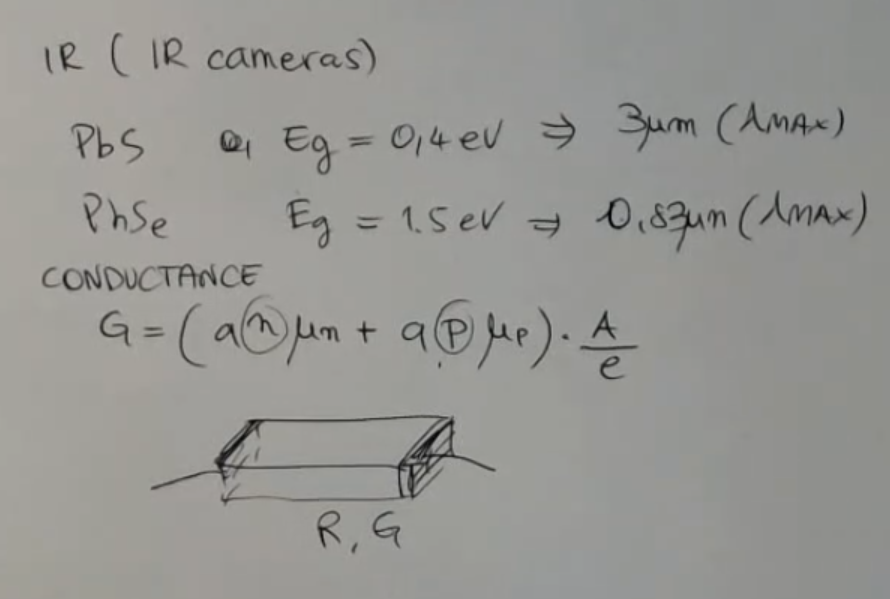 IR ( IR cameras)
PbS Eg = 0,4 eV ⇒ 3μm (λMAX)
PhSe Eg = 1.5 eV ⇒ 0.83μm (λMAX)
CONDUCTANCE
G = ( q n μn + q p μp ) · A / e
R, G